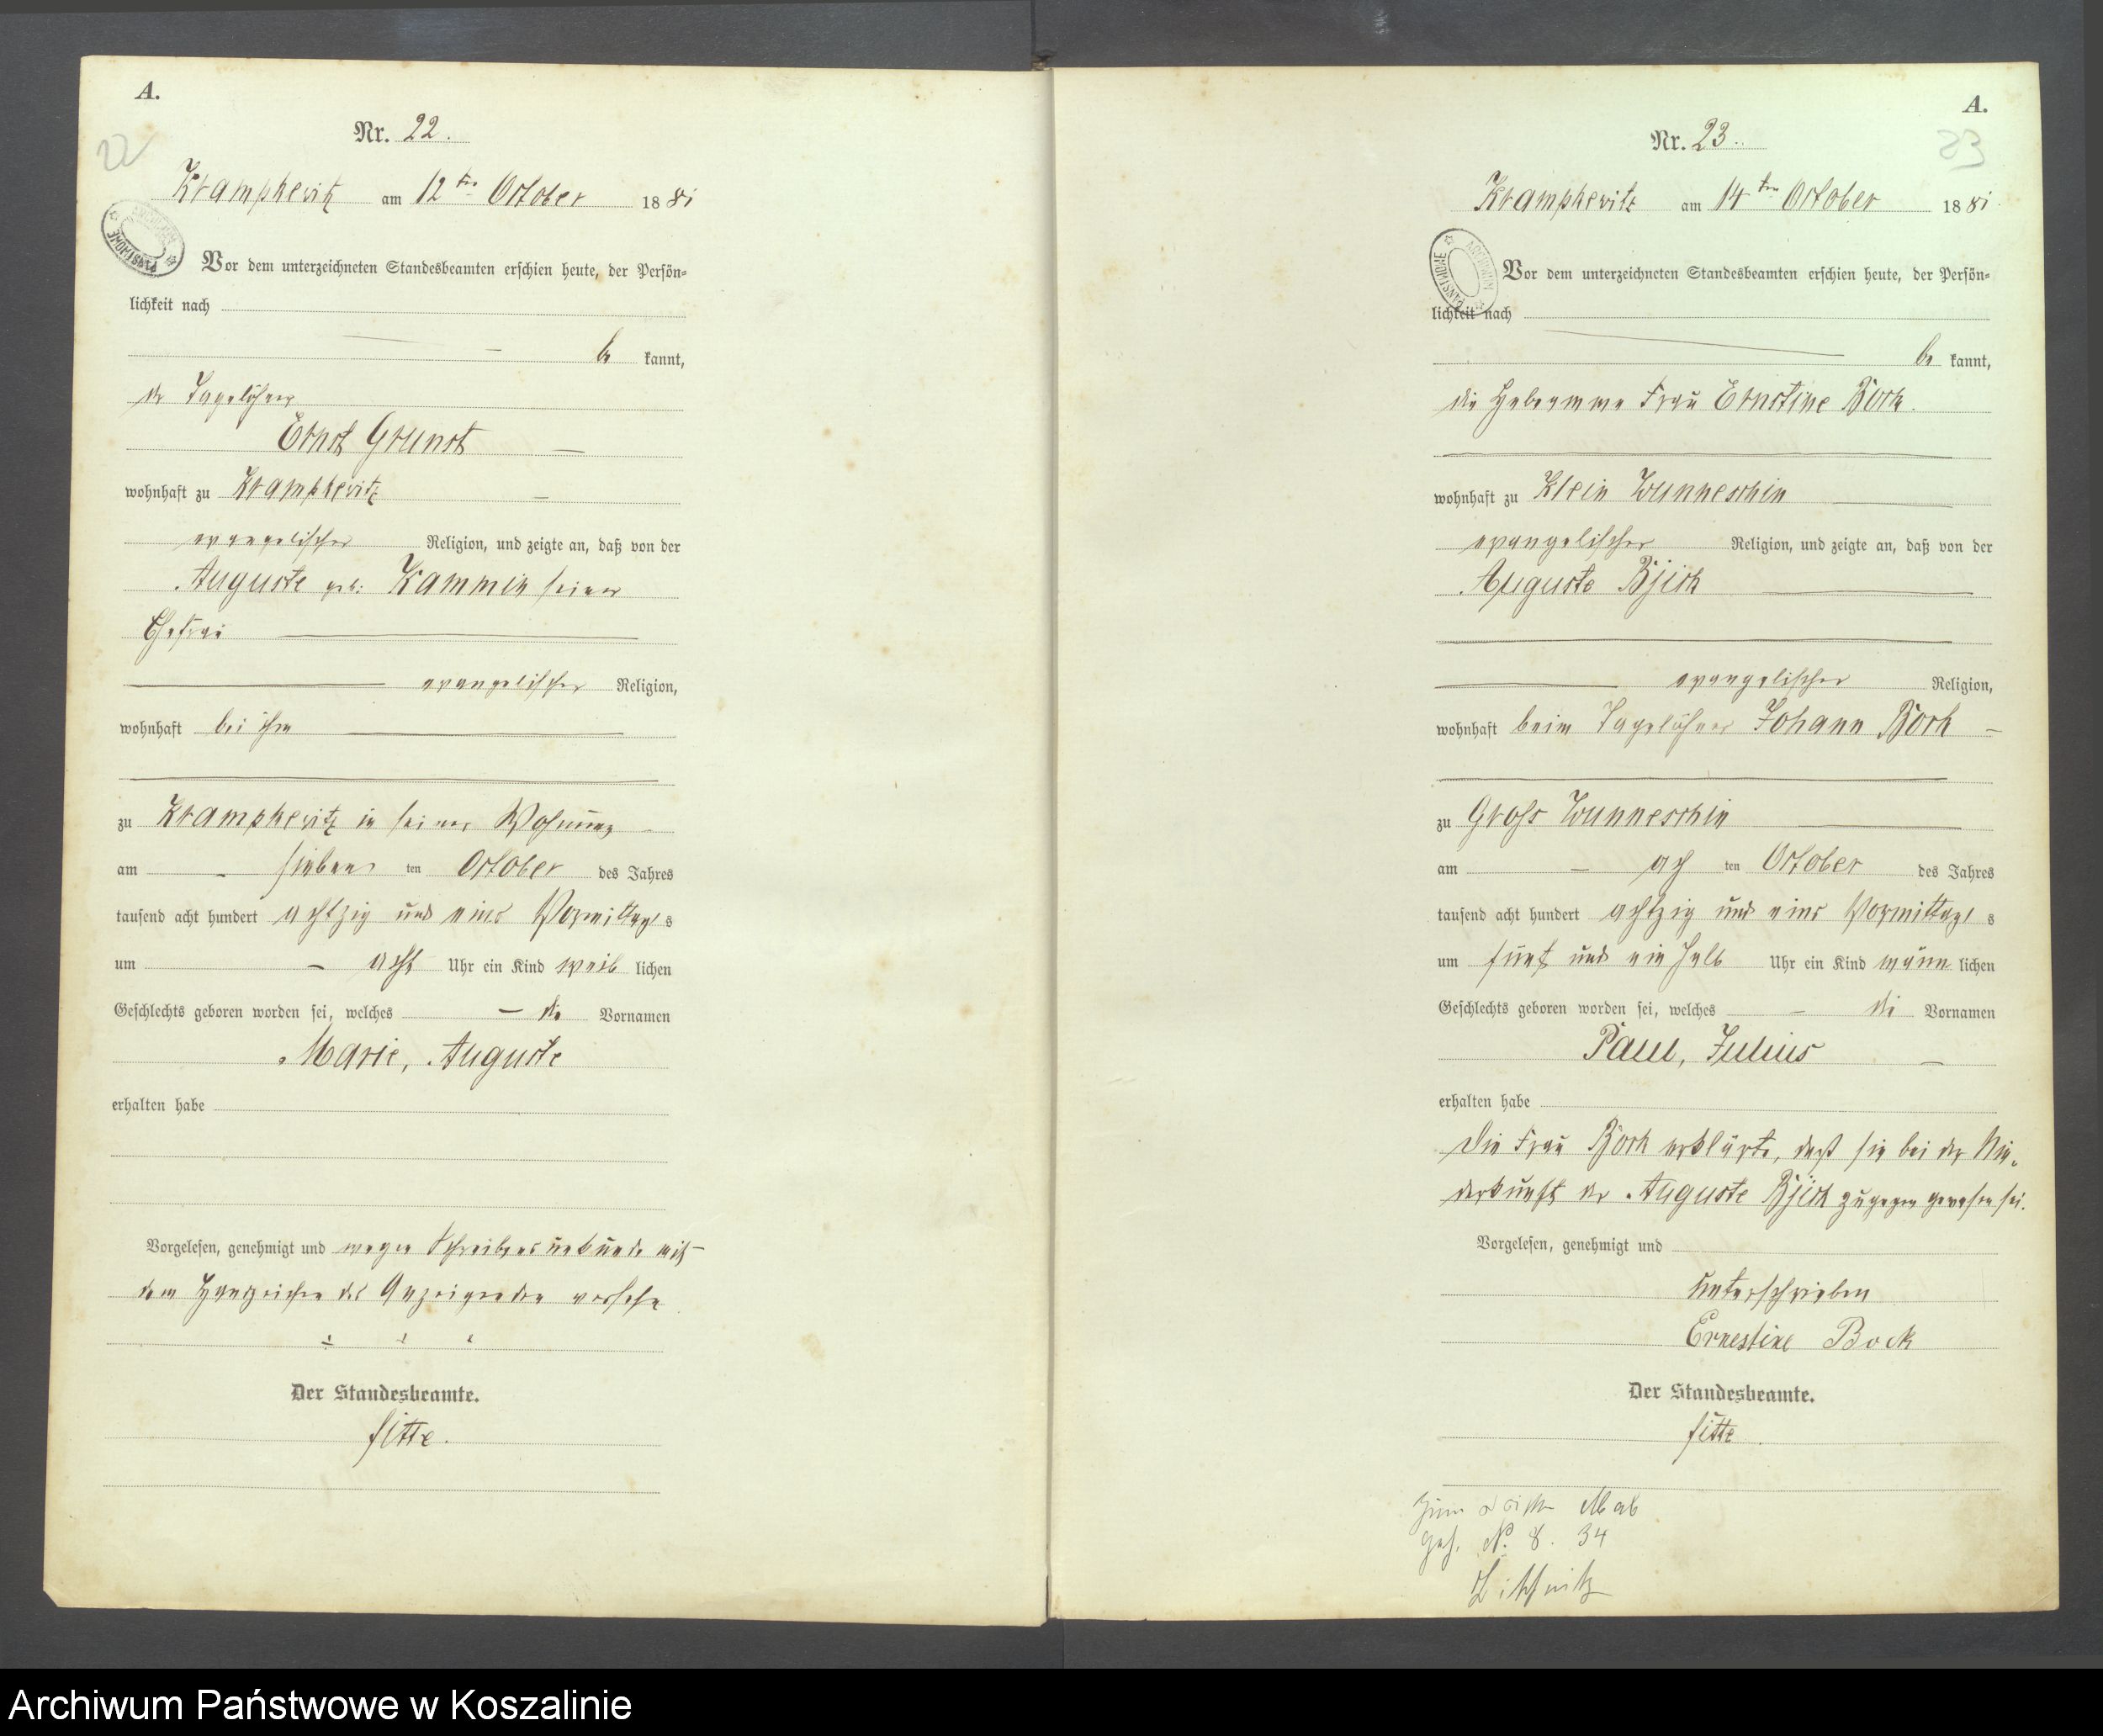 A.
22
Nr. 22.
Krampkewitz am 12ten October 1881
ARCHIWUM PAŃSTWOWE
Vor dem unterzeichneten Standesbeamten erschien heute, der Persön-
lichkeit nach
be kannt,
der Tagelöhner
Ernst Grunst
wohnhaft zu Krampkewitz
evangelischer Religion, und zeigte an, daß von der
Auguste geb. Kammin seiner
Ehefrau
evangelischer Religion,
wohnhaft bei ihm
zu Krampkewitz in seiner Wohnung
am sieben ten October des Jahres
tausend acht hundert achtzig und eins Vormittags
um acht Uhr ein Kind weib lichen
Geschlechts geboren worden sei, welches die Vornamen
Marie, Auguste
erhalten habe
Vorgelesen, genehmigt und wegen Schreibensunkunde mit
dem Handzeichen des Anzeigenden versehen
Der Standesbeamte.
Fitte.
A.
23
Nr. 23.
Krampkewitz am 14ten October 1881
ARCHIWUM PAŃSTWOWE
Vor dem unterzeichneten Standesbeamten erschien heute, der Persön-
lichkeit nach
be kannt,
die Hebamme Frau Ernstine Bock.
wohnhaft zu Klein Wunneschin
evangelischer Religion, und zeigte an, daß von der
Auguste
evangelischer Religion,
wohnhaft beim Tagelöhner Johann Bock
zu Groß Wunneschin
am ach ten October des Jahres
tausend acht hundert achtzig und eins Vormittags
um fünf und ein halb Uhr ein Kind männ lichen
Geschlechts geboren worden sei, welches die Vornamen
Paul, Julius
erhalten habe
Die Frau Bock erklärte, daß sie bei der Nie-
derkunft der Auguste zugegen gewesen sei.
Vorgelesen, genehmigt und
unterschrieben
Ernestine Bock
Der Standesbeamte.
Fitte
Zum
No. 8. 34
Archiwum Państwowe w Koszalinie